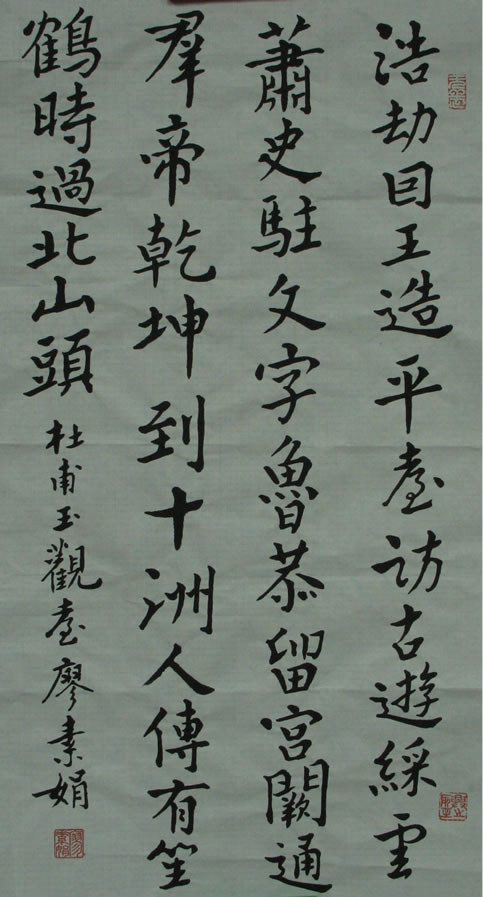 浩劫囙王造平臺訪古遊綵雲
蕭史駐文字魯恭留宮闕通
羣帝乾坤到十洲人傳有笙
鶴時過北山頭
杜甫玉觀臺廖素娟